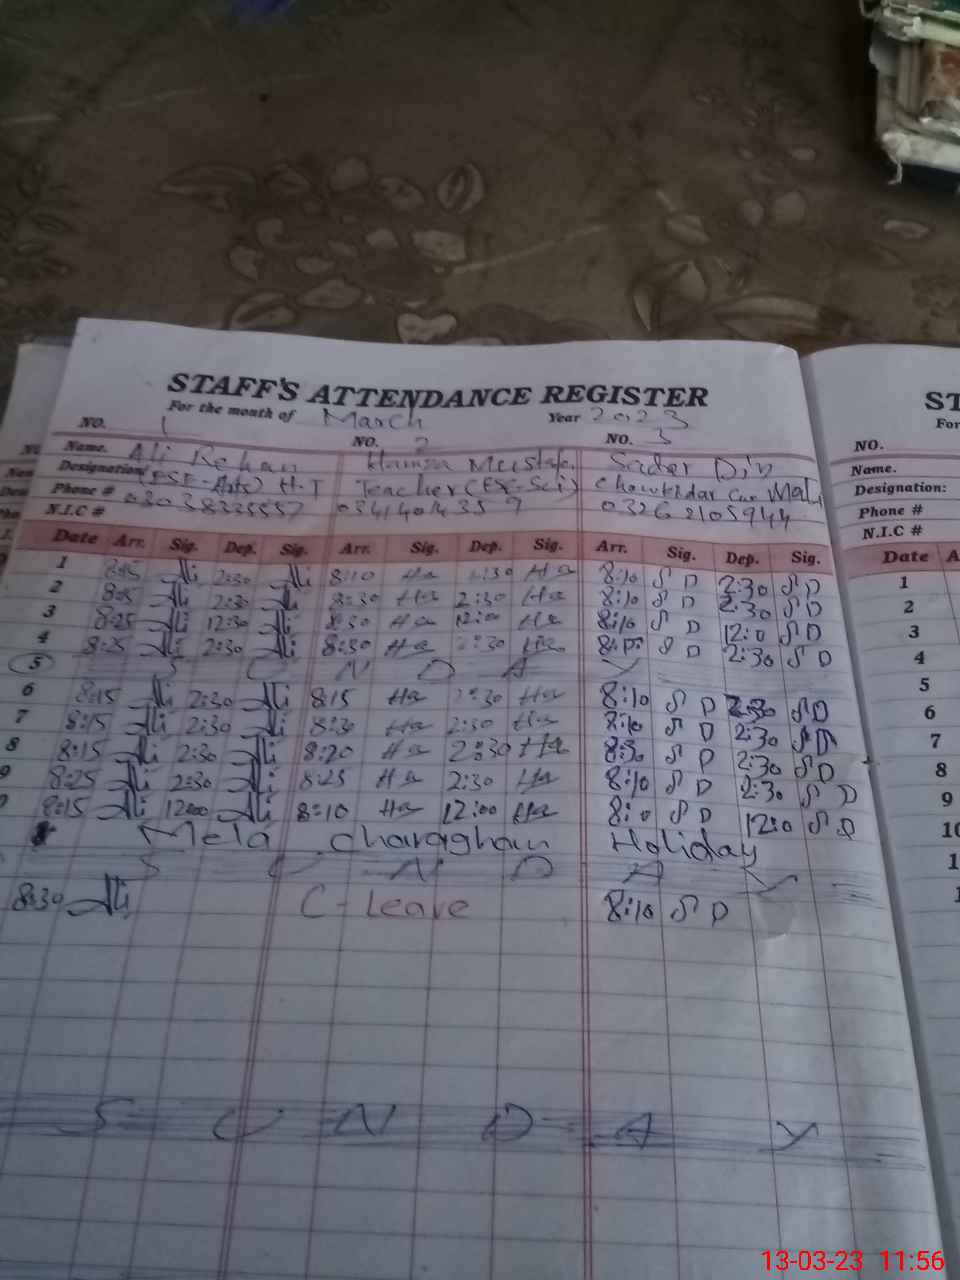 STAFF'S ATTENDANCE REGISTER
For the month of March Year 2023
NO. 1 NO. 2 NO. 3
Name. Ali Rehan Hamza Mustafa Sader Din
Designation (ESE-Arts) H.T Teacher (ESE-Sci) Chowkidar Cum Mali
Phone # 03038335557
N.I.C #
Date Arr. Sig. Dep. Sig. Arr. Sig. Dep. Sig. Arr. Sig. Dep. Sig.
1 8:15 Ali 2:30 Ali 8:10 Ha 2:30 Ha 8:10 S D 2:30 S D
2 8:15 Ali 2:30 Ali 8:30 Ha 2:30 Ha 8:10 S D 2:30 S D
3 8:25 Ali 12:30 Ali 8:30 Ha 12:00 Ha 8:10 S D 12:0 S D
4 8:25 Ali 2:30 Ali 8:30 Ha 2:30 Ha S D 2:30 S D
5 S U N D A Y
6 8:15 Ali 2:30 Ali 8:15 Ha 2:30 Ha 8:10 S D 2:30 S D
7 8:15 Ali 2:30 Ali 8:30 Ha 2:30 Ha 8:10 S D 2:30 S D
8 8:15 Ali 2:30 Ali 8:20 Ha 2:30 Ha 8:30 S D 2:30 S D
9 8:25 Ali 2:30 Ali 8:25 Ha 2:30 Ha 8:10 S D 2:30 S D
8:15 Ali 12:00 Ali 8:10 Ha 12:00 Ha S D 12:0 S D
Mela charaghan Holiday
S U N D A Y
8:30 Ali C-Leave 8:10 S D
S U N D A Y
ST
For
NO.
Name.
Designation:
Phone #
N.I.C #
Date A
1
2
3
4
5
6
7
8
9
10
1
1
13-03-23 11:56